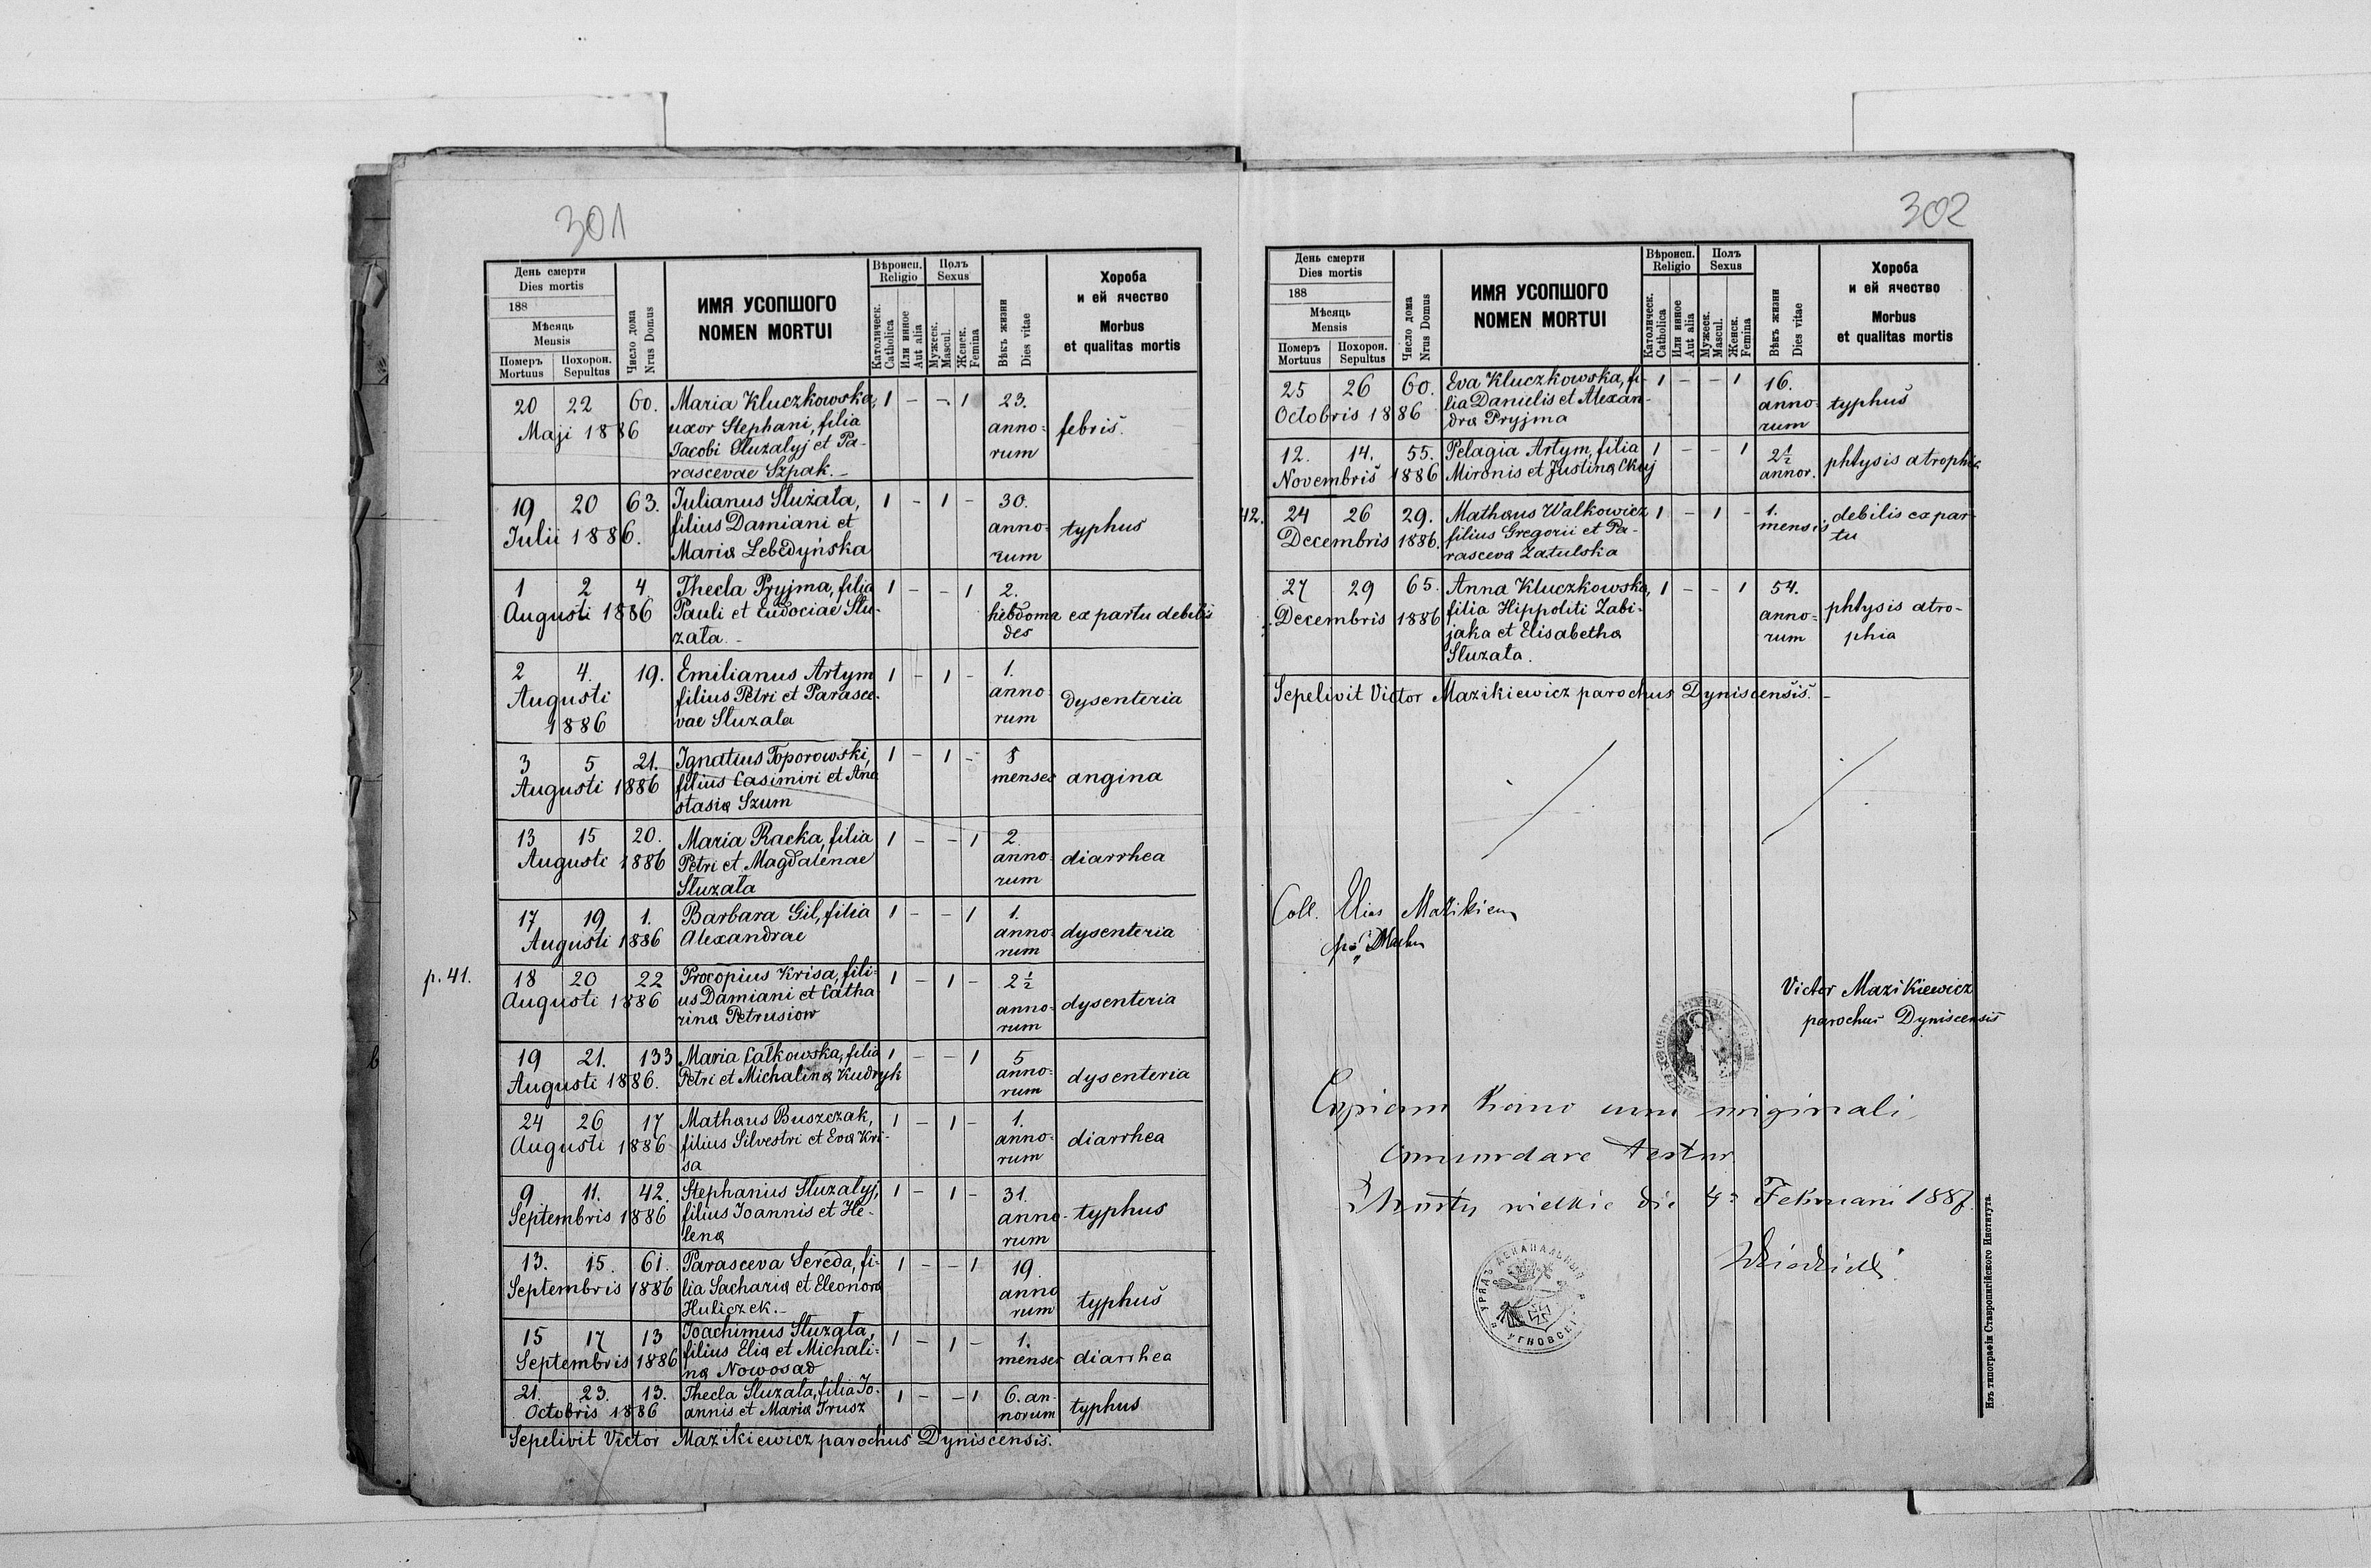 301
День смерти
Dies mortis
188
Мѣсяць
Mensis
Померъ
Mortuus
Похорон.
Sepultus
Число дома
Nrus Domus
ИМЯ УСОПШОГО
NOMEN MORTUI
Вѣроисп.
Religio
Католическ.
Catholica
Или инное
Aut alia
Полъ
Sexus
Мужеск.
Mascul.
Женск.
Femina
Вѣкъ жизни
Dies vitae
Хороба
и ей ячество
Morbus
et qualitas mortis
20 22 60. Maria Kluczkowska, 1 - - 1 23.
Maji 1886 uxor Stephani, filia anno- febris.
Jacobi Sluzalyj et Pa- rum
rascevae Szpak.-
19 20 63. Julianus Służała, 1 - 1 - 30.
Julii 1886. filius Damiani et anno- typhus
Mariæ Lebedyńska rum
1 2 4. Thecla Pryjma, filia 1 - - 1 2.
Augusti 1886 Pauli et Eudociae Słu- hebdoma ex partu debilis
zała.- des
2 4. 19. Emilianus Artym 1 - 1 - 1.
Augusti filius Petri et Parasce- anno- dysenteria
1886 vae Sluzala rum
3 5 21. Ignatius Toporowski, 1 - 1 - 8
Augusti 1886 filius Casimiri et Ana menses angina
stasiæ Szum
13 15 20. Maria Racka, filia 1 - - 1 2
Augusti 1886 Petri et Magdalenae anno- diarrhea
Słuzała rum
17 19 1. Barbara Gil, filia 1 - - 1 1.
Augusti 1886 Alexandrae anno- dysenteria
rum
p. 41. 18 20 22 Procopius Krisa, fili- 1 - 1 - 2½
Augusti 1886 us Damiani et Catha anno- dysenteria
rinæ Petrusiow rum
19 21. 133 Maria Całkowska, filia 1 - - 1 5
Augusti 1886. Petri et Michalinæ Kudryk anno- dysenteria
rum
24 26 17 Mathæus Buszczak, 1 - 1 - 1.
Augusti 1886 filius Silvestri et Evæ Kri- anno- diarrhea
sa rum
9 11. 42. Stephanius Sluzalyj, 1 - 1 - 31.
Septembris 1886 filius Joannis et He- anno- typhus
lenæ rum
13. 15. 61. Parasceva Sereda, fi- 1 - - 1 19.
Septembris 1886 lia Sachariæ et Eleonoræ anno typhus
Huliczek.- rum
15 17 13 Joachimus Słuzała, 1 - 1 - 1.
Septembris 1886 filius Eliæ et Michali- menses diarrhea
næ Nowosad
21. 23. 13. Thecla Sluzala, filia Jo- 1 - - 1 6. an-
Octobris 1886 annis et Mariæ Trusz norum typhus
Sepelivit Victor Mazikiewicz parochus Dyniscensis.
302
День смерти
Dies mortis
188
Мѣсяць
Mensis
Померъ
Mortuus
Похорон.
Sepultus
Число дома
Nrus Domus
ИМЯ УСОПШОГО
NOMEN MORTUI
Вѣроисп.
Religio
Католическ.
Catholica
Или инное
Aut alia
Полъ
Sexus
Мужеск.
Mascul.
Женск.
Femina
Вѣкъ жизни
Dies vitae
Хороба
и ей ячество
Morbus
et qualitas mortis
25 26 60. Eva Kluczkowska, fi- 1 - - 1 16.
Octobris 1886 lia Danielis et Alexan- anno- typhus
dræ Pryjma rum
12. 14. 55. Pelagia Artym, filia 1 - - 1 2½
Novembris 1886 Mironis et Justinæ annor. phtysis atrophia
42. 24 26 29. Mathæus Walkowicz 1 - 1 - 1. debilis ex par-
Decembris 1886. filius Gregorii et Pa- mensis tu
rascevæ Zatulska
27 29 65. Anna Kluczkowska, 1 - - 1 54.
Decembris 1886 filia Hippoliti Zabi- anno- phtysis atro-
jaka et Elisabethæ rum phia
Sluzała.
Sepelivit Victor Mazikiewicz parochus Dyniscensis.-
Coll. Elias
Victor Mazikiewicz
parochus Dyniscensis
Copiam hanc cum originali
concordare testor
wielkie die 4ª Februarii 1887.
УРЯДЪ ДЕКАНАЛЬНЫЙ
УГНОВСКІЙ
Изъ типографіи Ставропигійского Института.